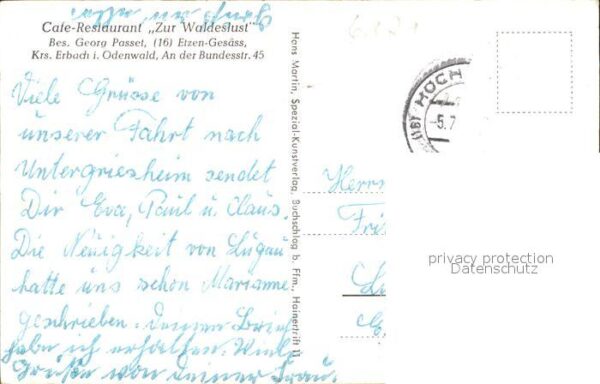 Cafe-Restaurant „Zur Waldeslust"
Bes. Georg Passet, (16) Etzen-Gesäss,
Krs. Erbach i. Odenwald, An der Bundesstr. 45
Viele Grüsse von
unserer Fahrt nach
Untergriesheim sendet
Dir Eva, Paul u. Claus.
Die Neuigkeit von Lugau
hatte uns schon Marianne
geschrieben. Deinen Brief
habe ich erhalten. Viele
Grüße von Deiner Frau.
Hans Martin, Spezial-Kunstverlag, Buchschlag b. Ffm., Hainertrift 11
(16) HOCH
-5.7
Herrn
Fri
privacy protection
Datenschutz